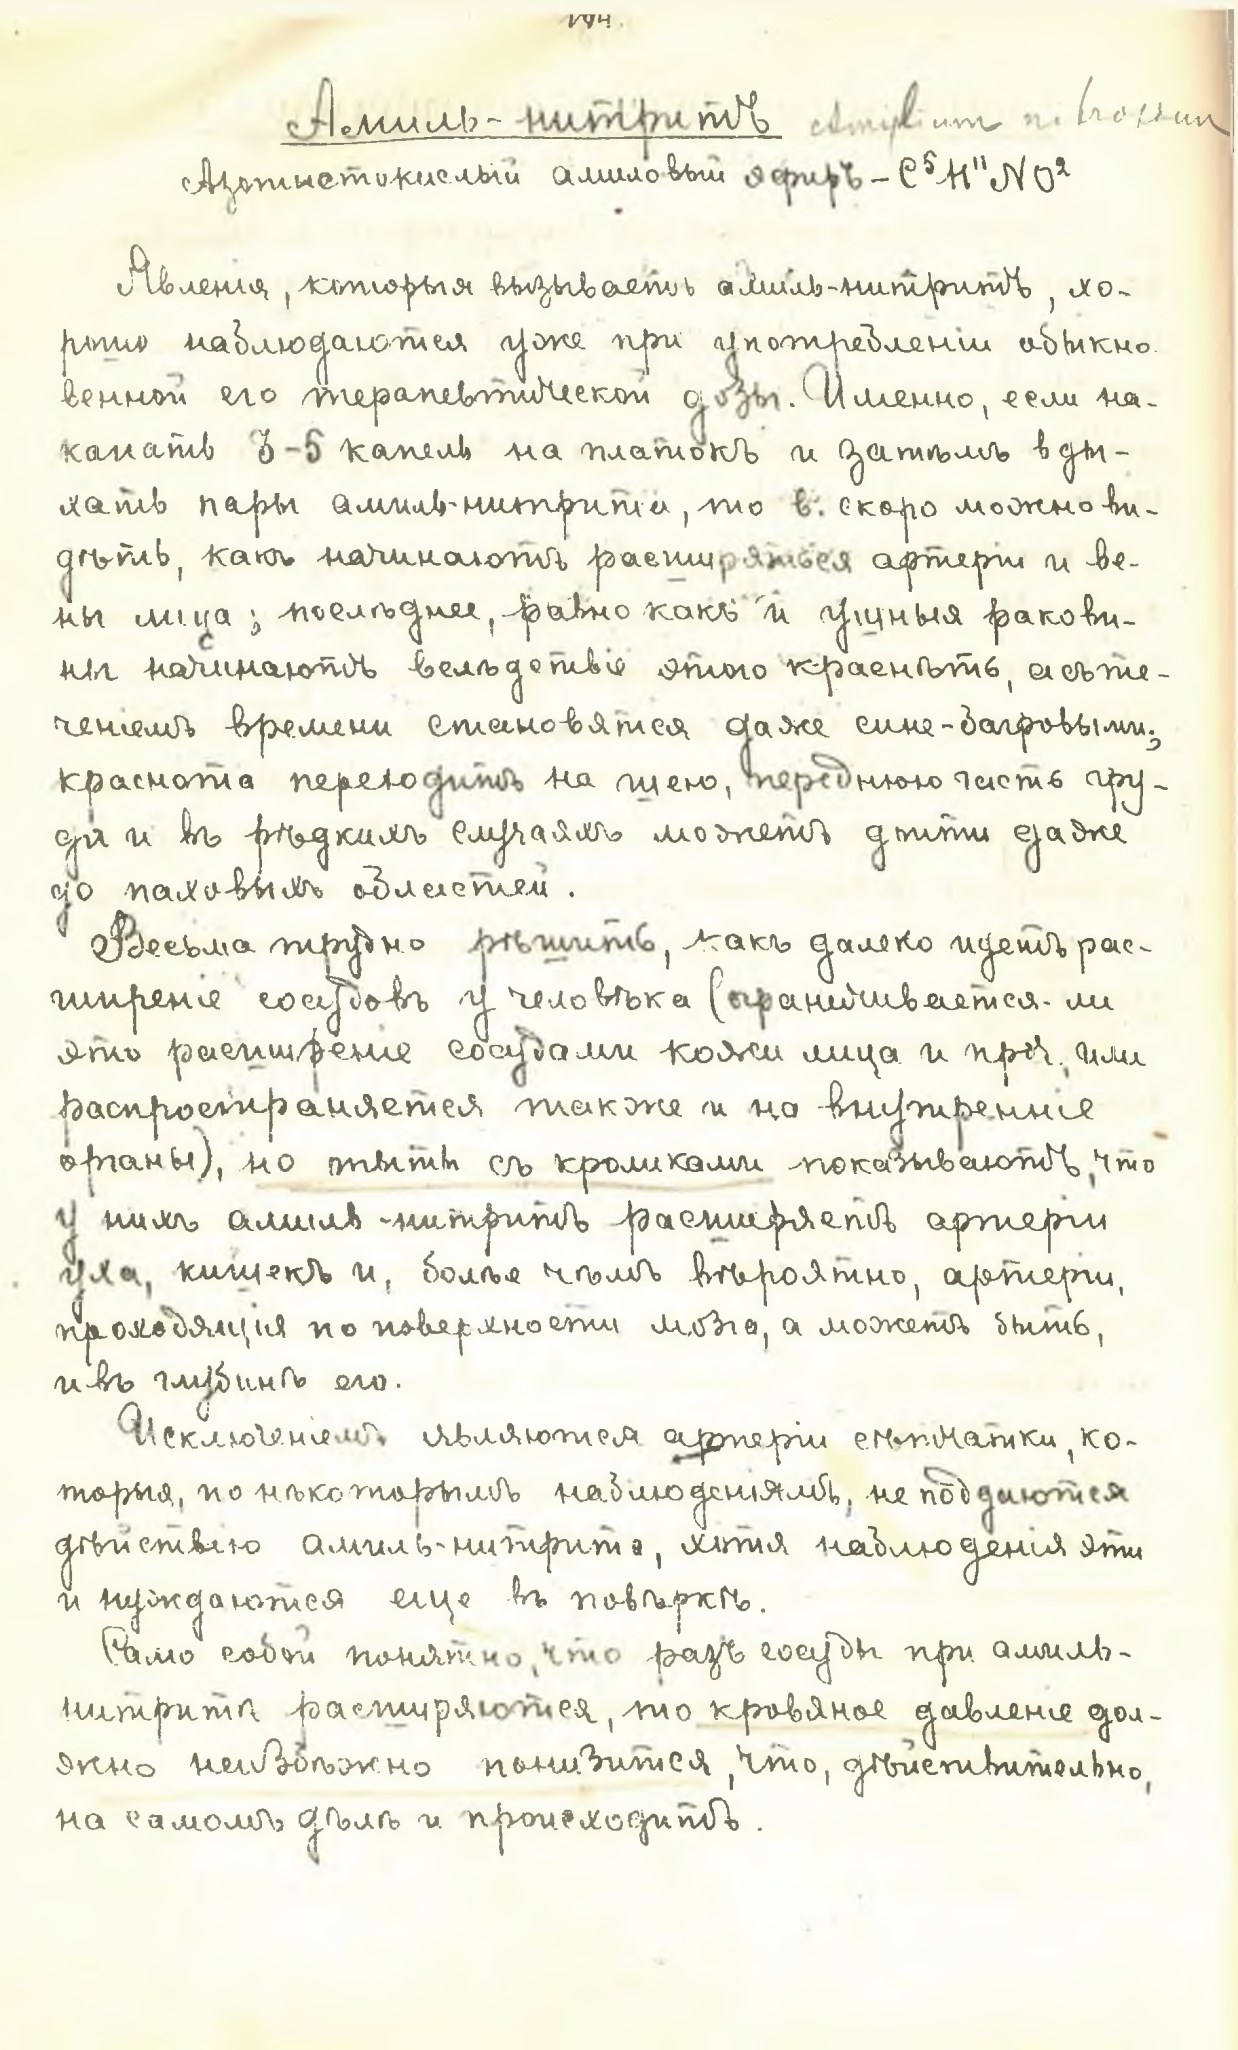 194.
Амиль-нитритъ Amylium nitrosum
Азотистокислый амиловый эфиръ – C⁵H¹¹NO²
Явленія, которыя вызываетъ амиль-нитритъ, хо-
рошо наблюдаются уже при употребленіи обыкно
венной его терапевтической дозы. Именно, если на-
капать 3-5 капель на платокъ и затѣмъ вды-
хать пары амиль-нитрита, то в. скоро можно ви-
дѣть, какъ начинаютъ расширяться артеріи и ве-
ны лица; послѣднее, равно какъ и ушныя ракови-
ны начинаютъ вслѣдствіе этого краснѣть, а съ те-
ченіемъ времени становятся даже сине-багровыми;
краснота переходитъ на шею, переднюю часть гру-
ди и въ рѣдкихъ случаяхъ можетъ дойти даже
до паховыхъ областей.
Весьма трудно рѣшить, какъ далеко идетъ рас-
ширеніе сосудовъ у человѣка (ограничивается-ли
это расширеніе сосудами кожи лица и проч., или
распространяется также и на внутренніе
органы), но опыты съ кроликами показываютъ, что
у нихъ амиль-нитритъ расширяетъ артеріи
уха, кишекъ и, болѣе чѣмъ вѣроятно, артеріи,
проходящія по поверхности мозга, а можетъ быть,
и въ глубинѣ его.
Исключеніемъ являются артеріи сѣтчатки, ко-
торыя, по нѣкоторымъ наблюденіямъ, не поддаются
дѣйствію амиль-нитрита, хотя наблюденія эти
и нуждаются еще въ повѣркѣ.
Само собой понятно, что разъ сосуды при амиль-
нитритѣ расширяются, то кровяное давленіе дол-
жно неизбѣжно понизится, что, дѣйствительно,
на самомъ дѣлѣ и происходитъ.